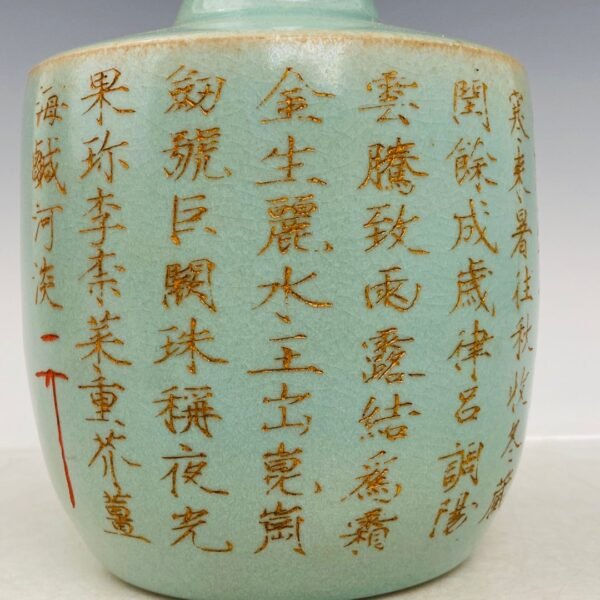 寒來暑往秋收冬藏
閏餘成歲律呂調陽
雲騰致雨露結爲霜
金生麗水玉出崑崗
劍號巨闕珠稱夜光
果珍李柰菜重芥薑
海鹹河淡